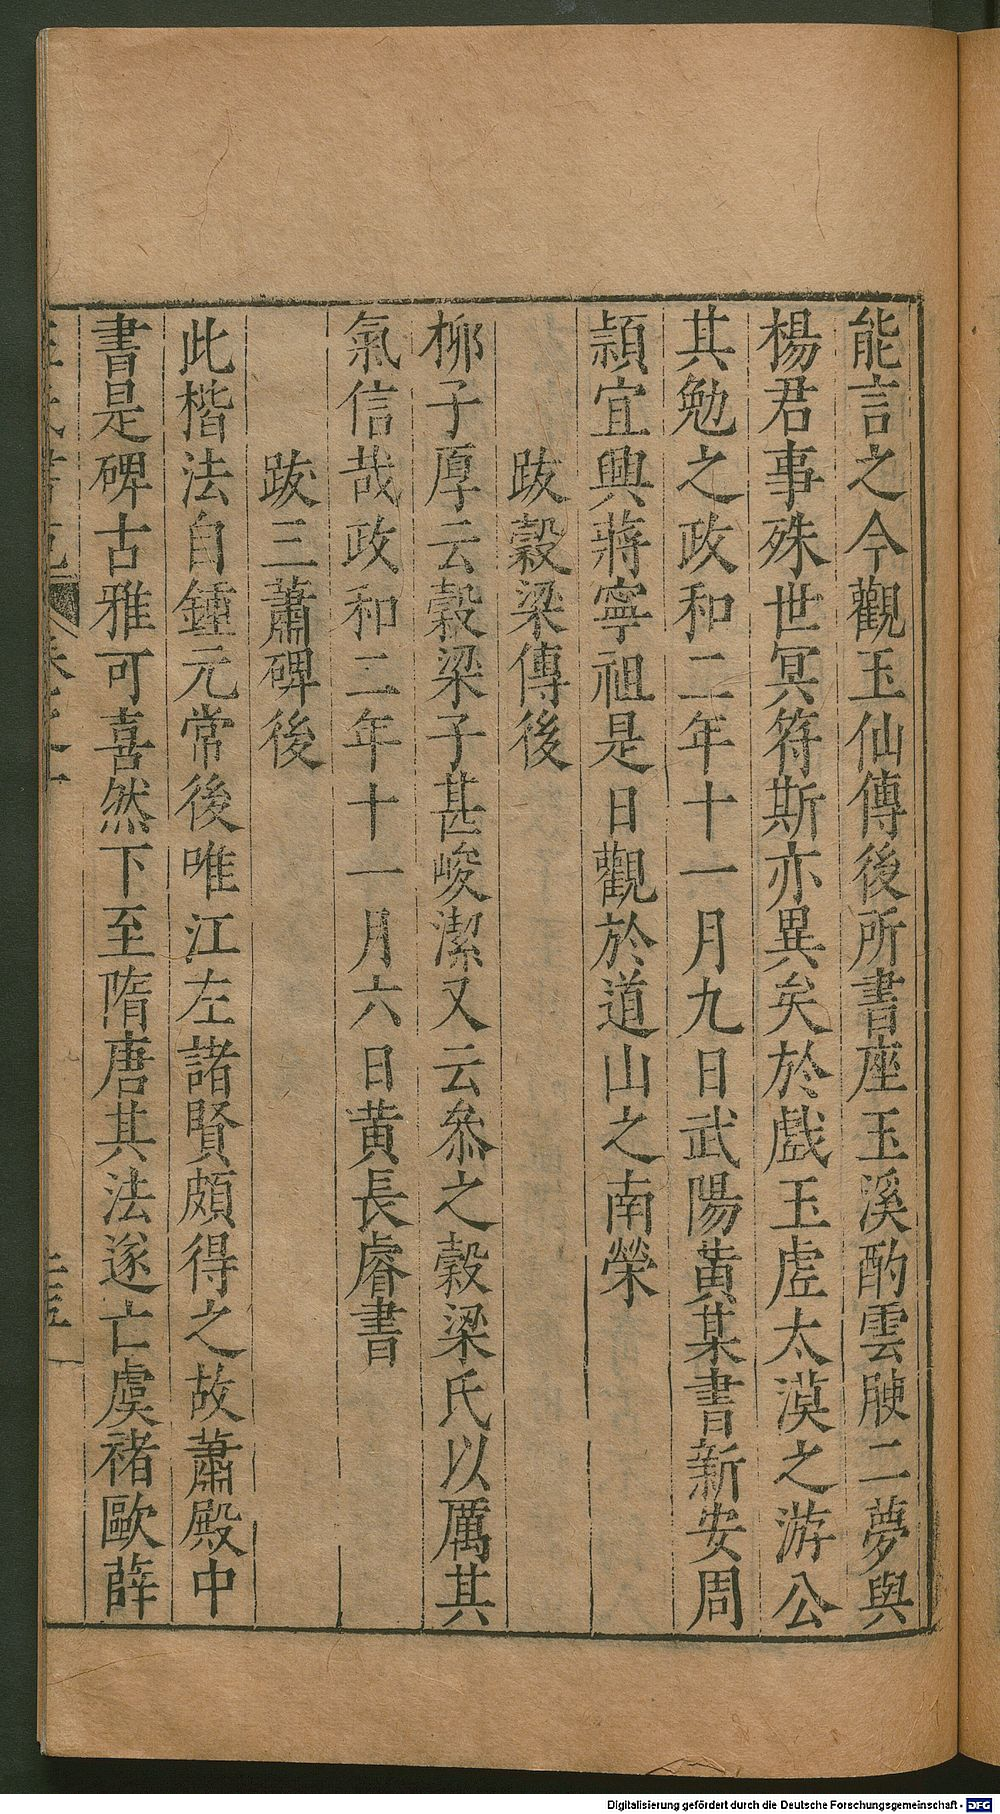 能言之今觀玉仙傳後所書座玉溪酌雲腴二夢與
楊君事殊世冥符斯亦異矣於戲玉虛太漠之游公
其勉之政和二年十一月九日武陽黃某書新安周
頴宜興蔣寧祖是日觀於道山之南榮
跋穀梁傳後
柳子厚云穀梁子甚峻潔又云叅之穀梁氏以厲其
氣信哉政和二年十一月六日黃長睿書
跋三蕭碑後
此楷法自鍾元常後唯江左諸賢頗得之故蕭殿中
書是碑古雅可喜然下至隋唐其法遂亡虞褚歐薛
Digitalisierung gefördert durch die Deutsche Forschungsgemeinschaft - DFG